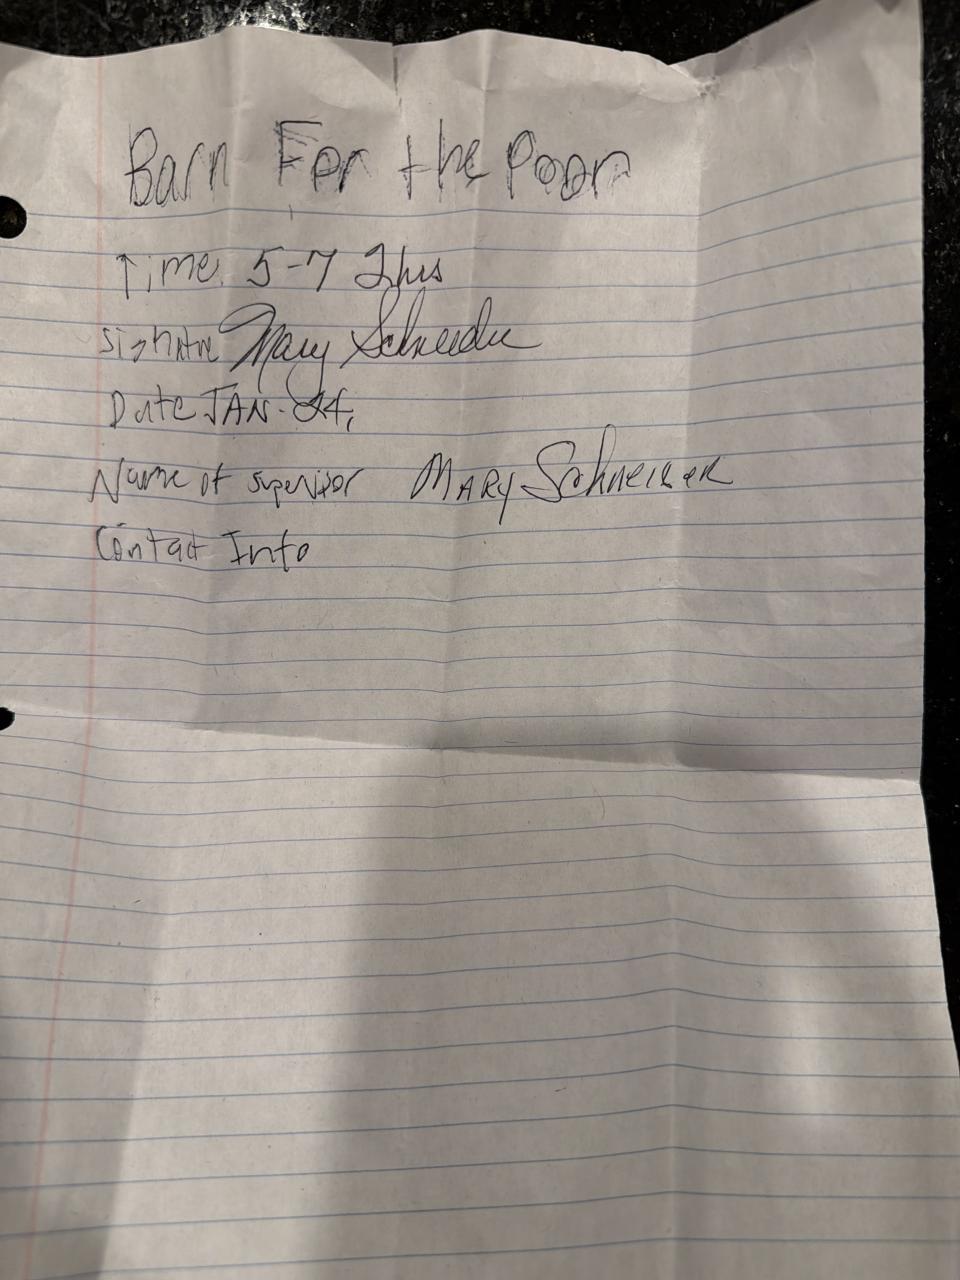 Barn For the Poor
Time. 5-7 2hrs
Signature Mary Schneider
Date JAN. 24,
Name of supervisor MARY Schneider
Contact Info